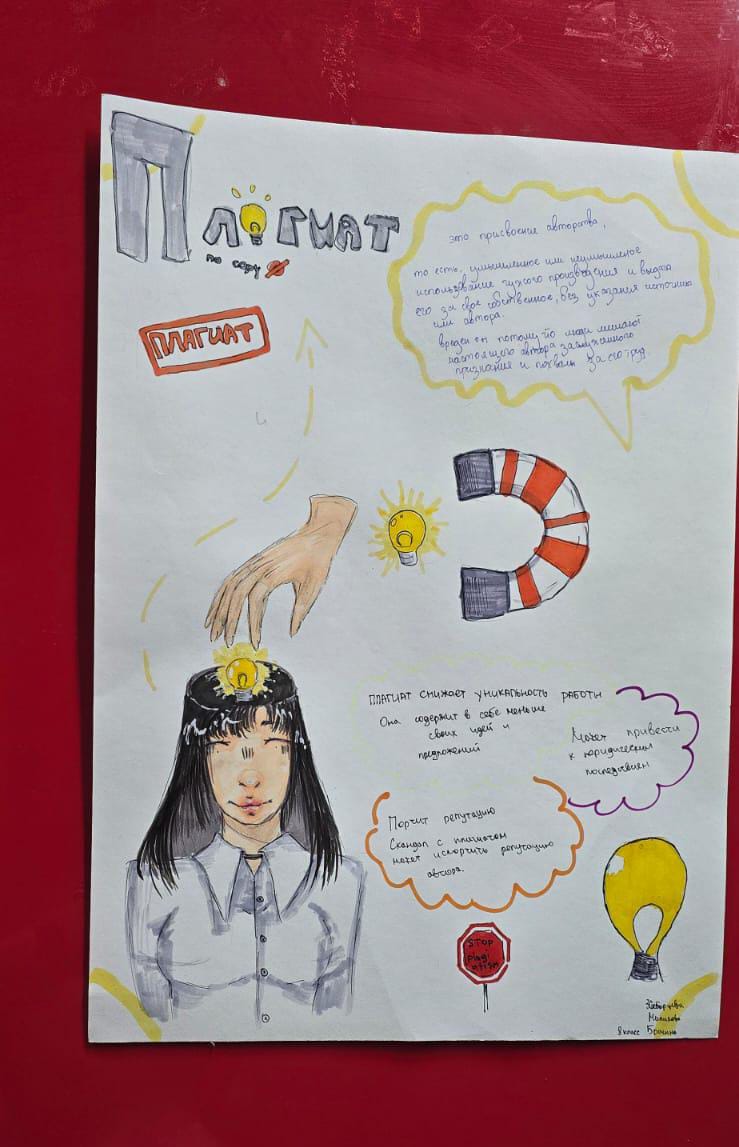 Плагиат
no copy
ПЛАГИАТ
это присвоение авторства,
то есть, умышленное или неумышленное
использование чужого произведения и выдача
его за свое собственное, без указания источника
или автора.
вреден он потому что люди лишают
настоящего автора заслуженного
признания и похвалы за его труд.
ПЛАГИАТ СНИЖАЕТ УНИКАЛЬНОСТЬ РАБОТЫ
Она содержит в себе меньше
своих идей и
предложений
Может привести
к юридическим
последствиям
Портит репутацию
Скандал с плагиатом
может испортить репутацию
автора.
STOP
plagi
atism
8 класс